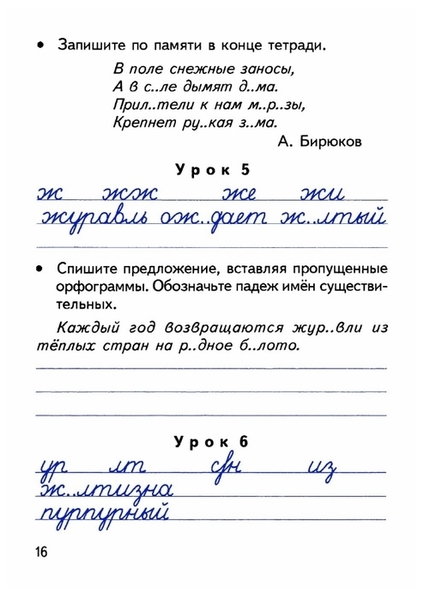 • Запишите по памяти в конце тетради.
В поле снежные заносы,
А в с..ле дымят д..ма.
Прил..тели к нам м..р..зы,
Крепнет ру..кая з..ма.
А. Бирюков
Урок 5
ж жж же жи
журавль ож..дает ж..лтый
• Спишите предложение, вставляя пропущенные
орфограммы. Обозначьте падеж имён существи-
тельных.
Каждый год возвращаются жур..вли из
тёплых стран на р..дное б..лото.
Урок 6
ур лт свн из
ж..лтизна
пурпурный
16